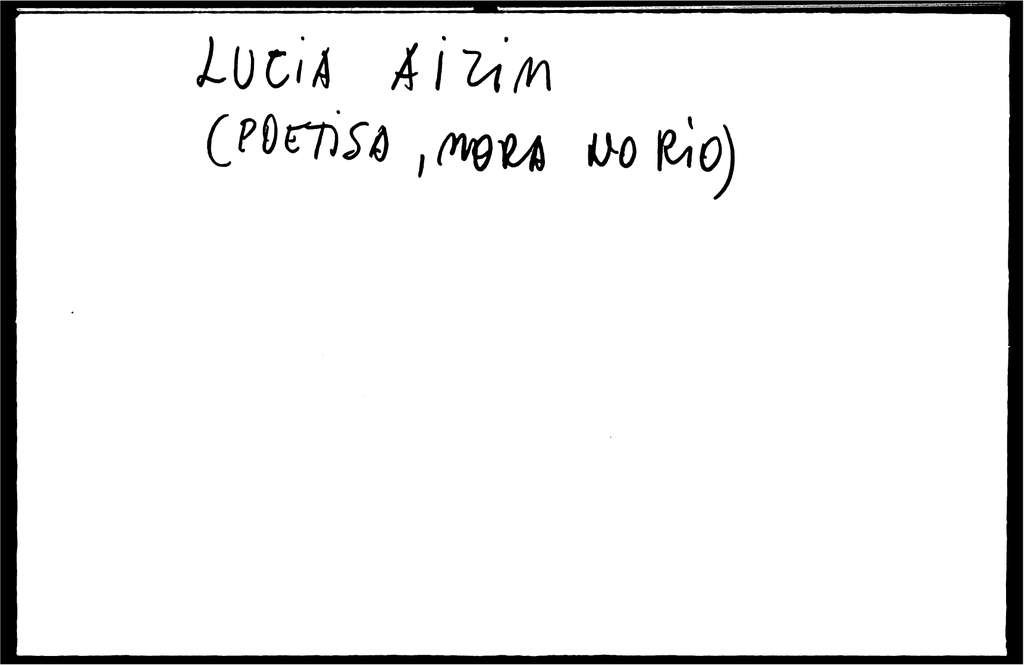 LUCIA AIZIM
(POETISA, MORA NO RIO)